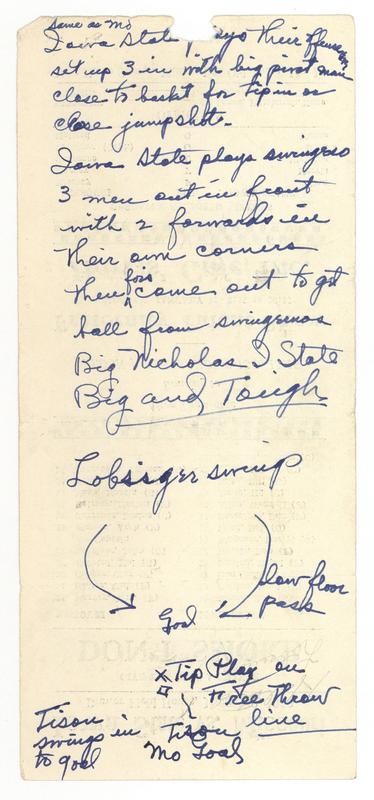 same as Mo
Iowa State plays their offensive
set up 3 in with big pivot man
close to basket for tip in or
close jumpshot.
Iowa State plays swingmo
3 men out in front
with 2 forwards in
their own corners
Their fors come out to get
ball from swingmos
Big Nicholas I State
Big and Tough
Lobsiger swing
low floor
pass
Goal
x Tip Play on
Free Throw
line
Tison
swings in
to goal
Tison
Mo Goal